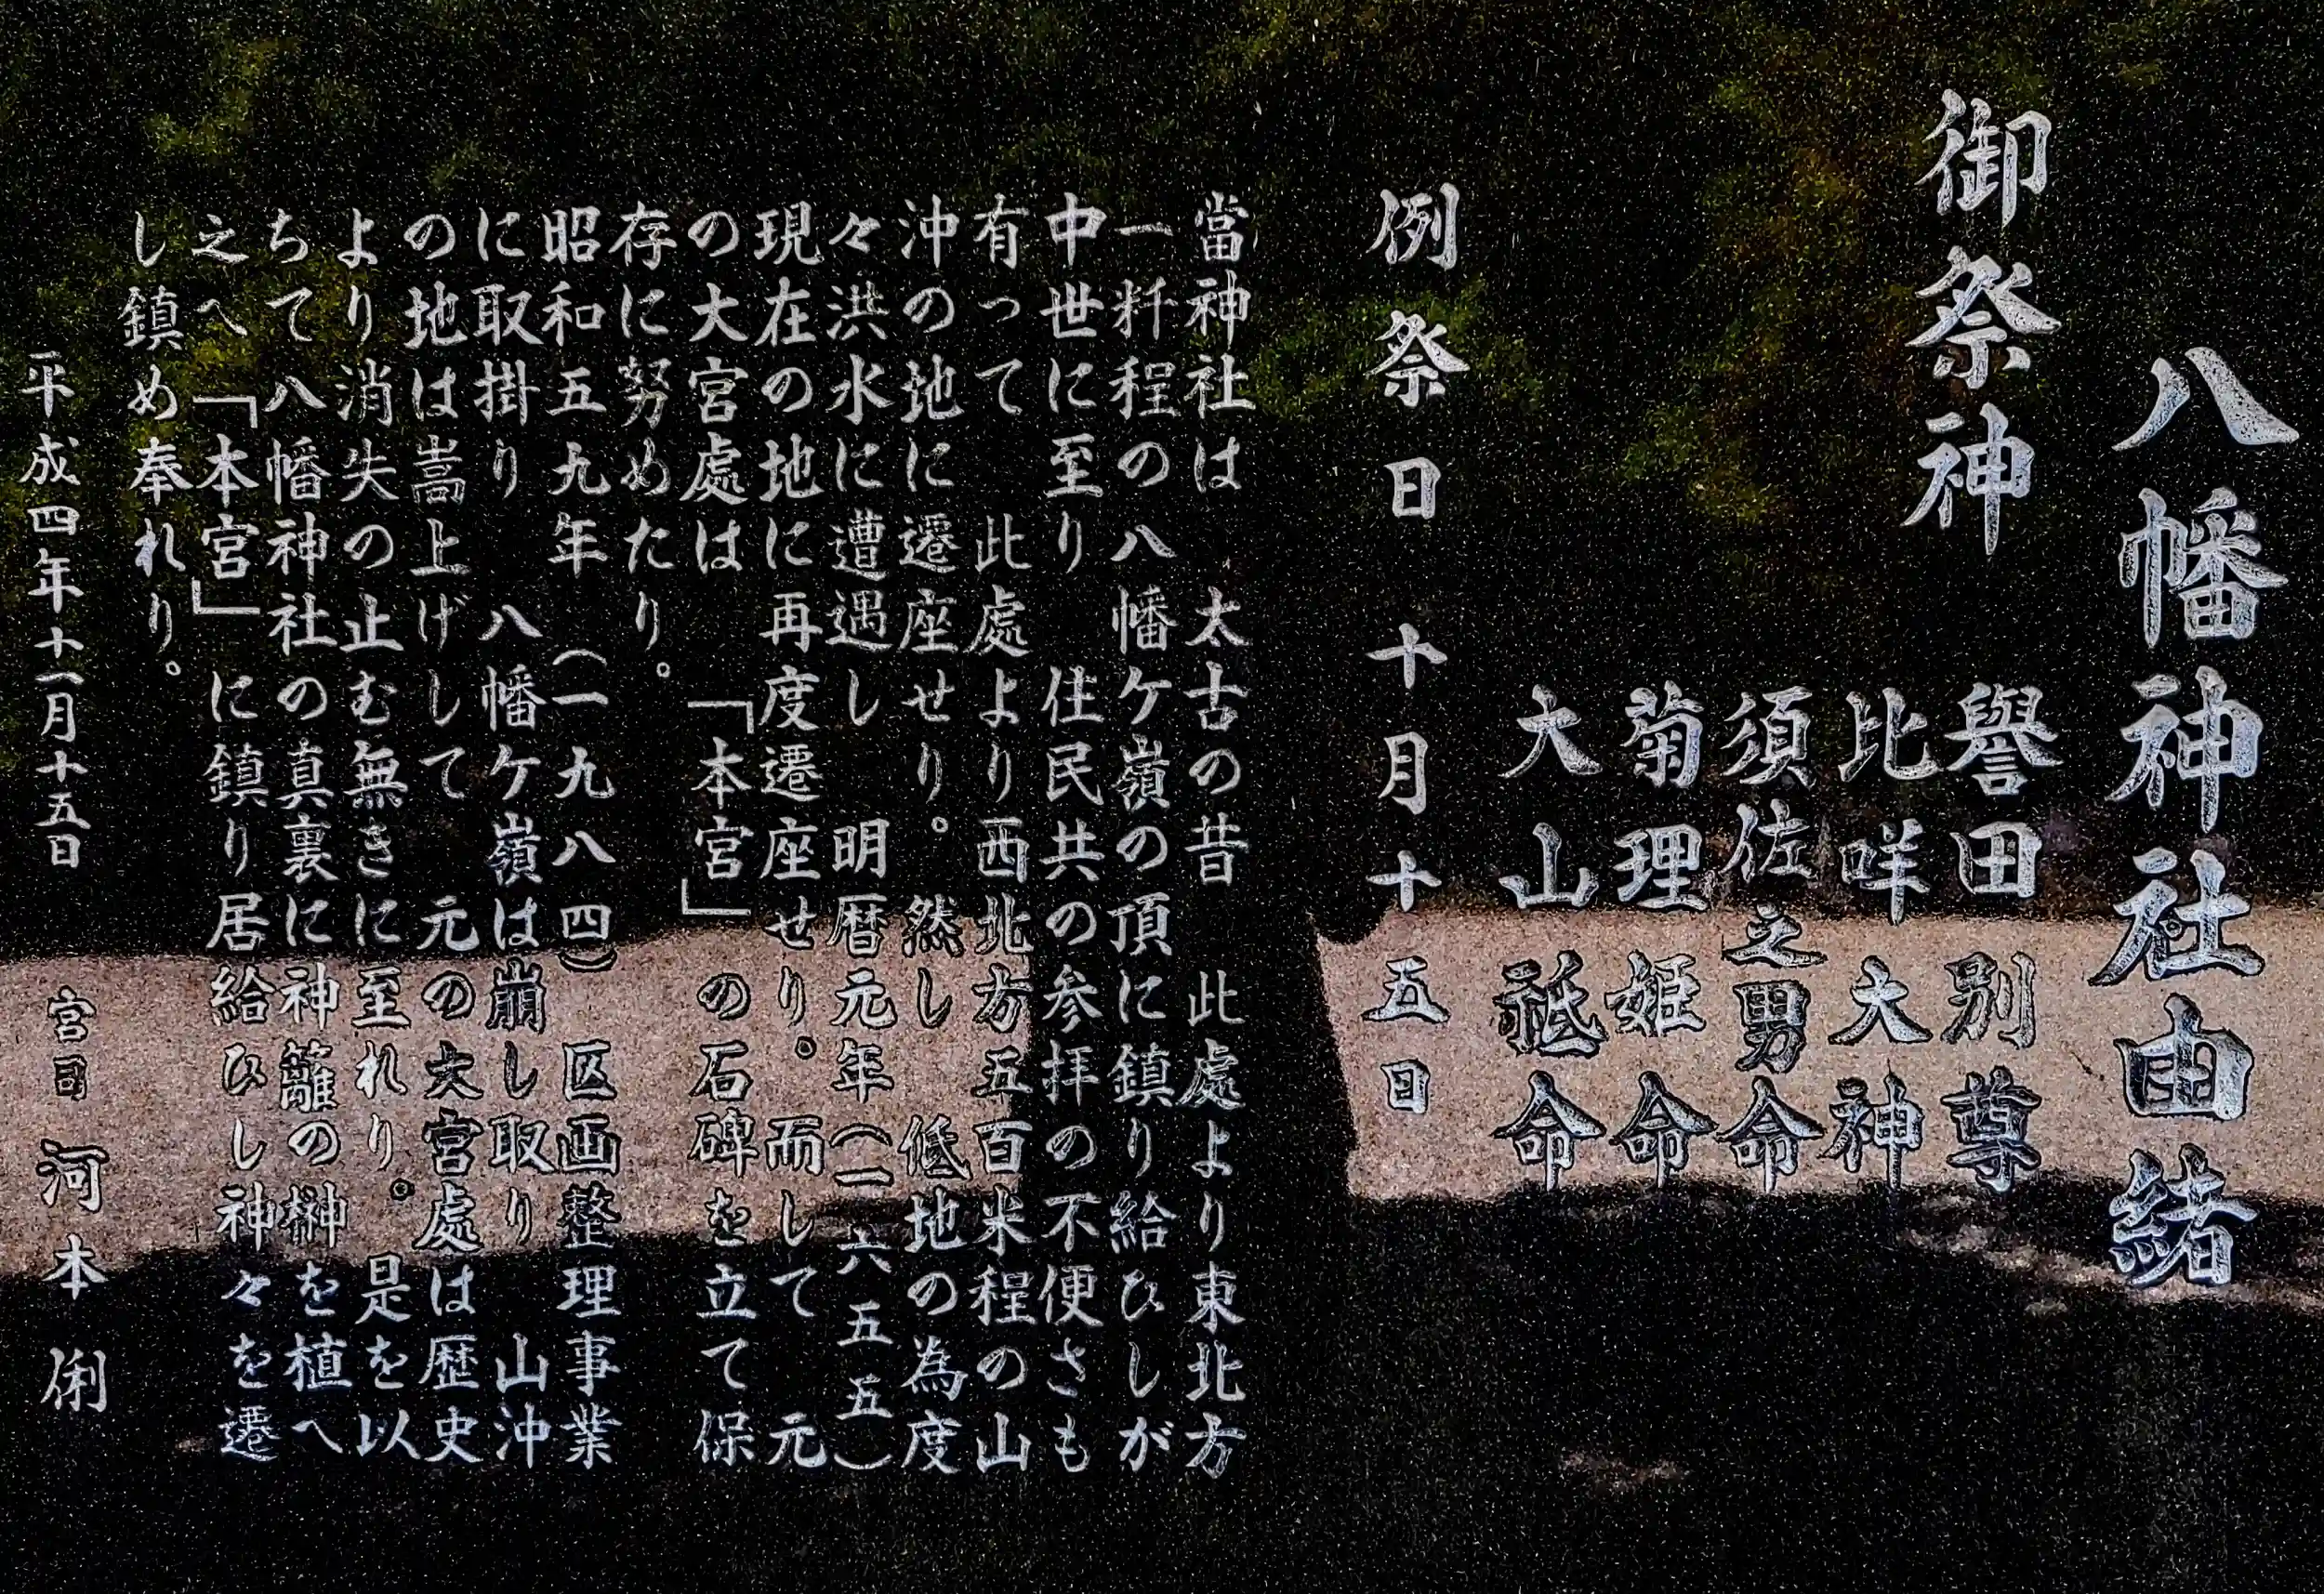 八幡神社由緒
御祭神
譽田別尊
比咩大神
須佐之男命
菊理姫命
大山祗命
例祭日 十月十五日
當神社は 太古の昔 此處より東北方
一粁程の八幡ケ嶺の頂に鎮り給ひしが
中世に至り 住民共の参拝の不便さも
有って 此處より西北方五百米程の山
沖の地に遷座せり。然し 低地の為度
々洪水に遭遇し 明暦元年(一六五五)
現在の地に再度遷座せり。而して 元
の大宮處は 「本宮」の石碑を立て保
存に努めたり。
昭和五九年(一九八四)区画整理事業
に取掛り 八幡ケ嶺は崩し取り 山沖
の地は嵩上げして 元の大宮處は歴史
より消失の止む無きに至れり。是を以
ちて八幡神社の真裏に神籬の榊を植へ
之へ「本宮」に鎮り居給ひし神々を遷
し鎮め奉れり。
平成四年十一月十五日 宮司 河本 俐